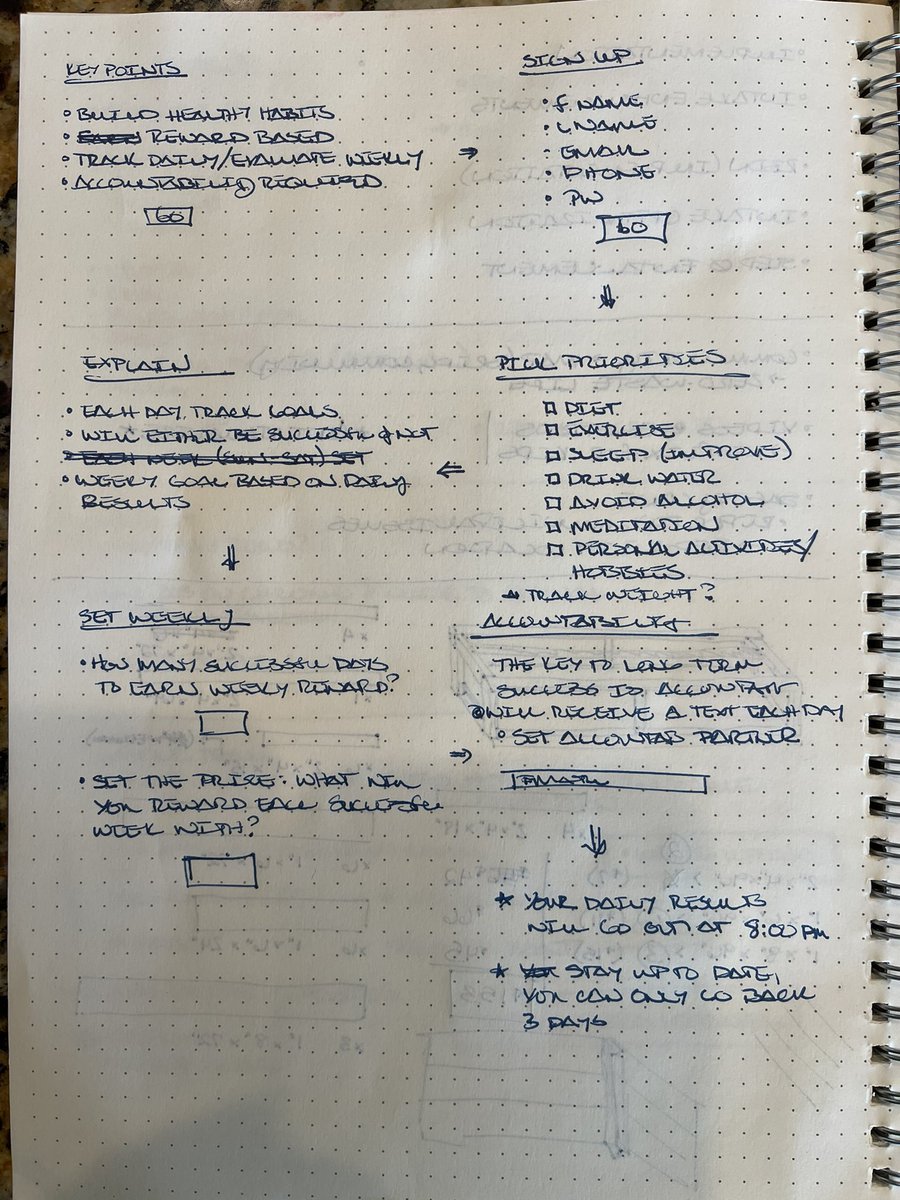 KEY POINTS
• BUILD HEALTHY HABITS
• REWARD BASED
• TRACK DAILY/EVALUATE WEEKLY
• ACCOUNTABILITY REQUIRED
GO
SIGN UP
• F NAME
• L NAME
• EMAIL
• PHONE
• PW
GO
PICK PRIORITIES
□ DIET
□ EXERCISE
□ SLEEP (IMPROVE)
□ DRINK WATER
□ AVOID ALCOHOL
□ MEDITATION
□ PERSONAL ACTIVITIES/
HOBBIES
TRACK WEIGHT?
EXPLAIN
• EACH DAY TRACK GOALS
• WILL EITHER BE SUCCESSFUL or NOT
EACH WEEK (SUN-SAT) SET
• WEEKLY GOAL BASED ON DAILY
RESULTS
SET WEEKLY
• HOW MANY SUCCESSFUL DAYS
TO EARN WEEKLY REWARD?
• SET THE PRIZE: WHAT WILL
YOU REWARD EACH SUCCESSFUL
WEEK WITH?
ACCOUNTABILITY
THE KEY TO LONG TERM
SUCCESS IS ACCOUNTAB
WILL RECEIVE A TEXT EACH DAY
• SET ACCOUNTAB PARTNER
EMAIL
* YOUR DAILY RESULTS
WILL GO OUT AT 8:00 PM
* STAY UP TO DATE,
YOU CAN ONLY GO BACK
3 DAYS